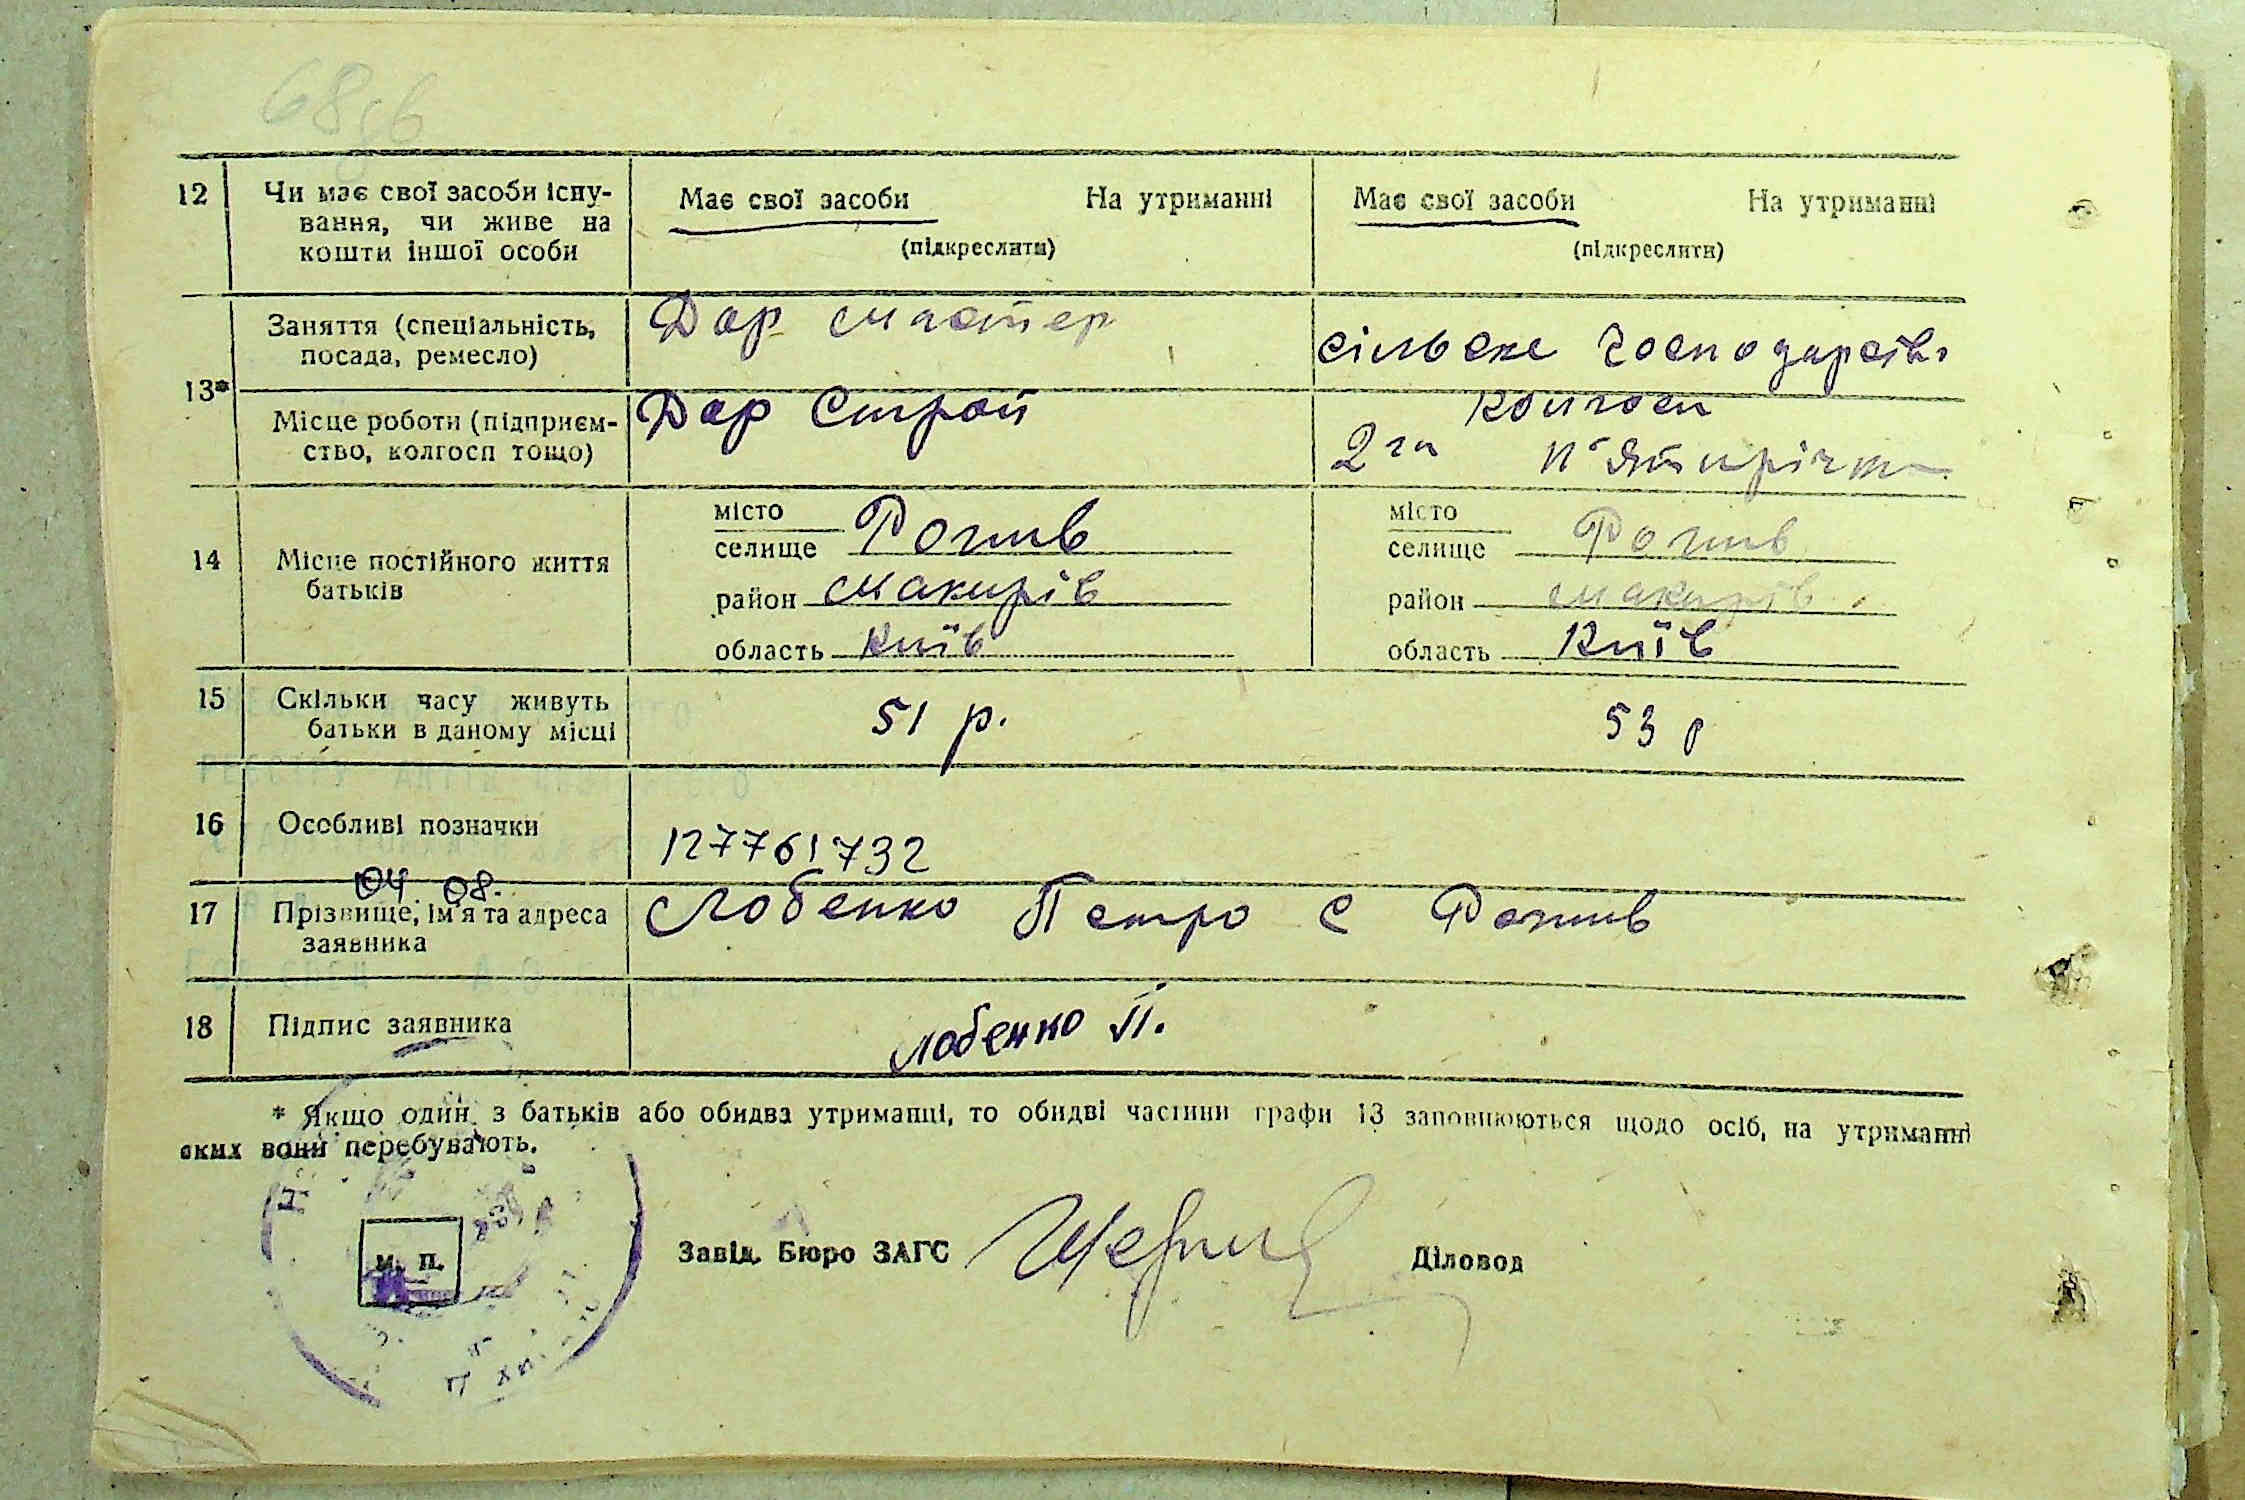 68
12 Чи має свої засоби існу-
вання, чи живе на
кошти іншої особи
Має свої засоби На утриманні
(підкреслити)
Має свої засоби На утриманні
(підкреслити)
13*
Заняття (спеціальність,
посада, ремесло)
Дор мастер
сільске господарств
Місце роботи (підприєм-
ство, колгосп тощо)
Дор Строй
Колгосп
2 га п'ятирічка
14 Місце постійного життя
батьків
місто
селище Рогив
район Макирів
область Київ
місто
селище Рогив
район Макирів
область Київ
15 Скільки часу живуть
батьки в даному місці
51 р.
53 р
16 Особливі позначки
127761732
04 08.
17 Прізвище, ім'я та адреса
заявника
Лобенко Петро с Рогив
18 Підпис заявника
Лобенко П.
* Якщо один з батьків або обидва утриманці, то обидві частини графи 13 заповнюються щодо осіб, на утриманні
яких вони перебувають.
М. П.
Завід. Бюро ЗАГС
Діловод